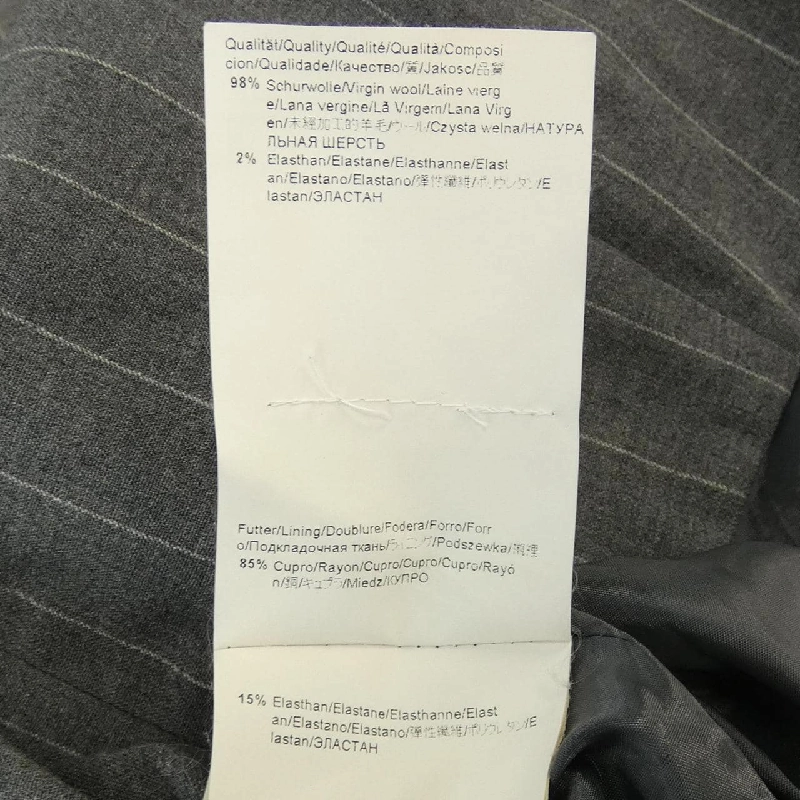 Qualität/Quality/Qualité/Qualità/Composi
cion/Qualidade/Качество/質/Jakosc/品質
98% Schurwolle/Virgin wool/Laine vierg
e/Lana vergine/Lã Virgem/Lana Virg
en/未經加工的羊毛/ウール/Czysta welna/НАТУРА
ЛЬНАЯ ШЕРСТЬ
2% Elasthan/Elastane/Elasthanne/Elast
an/Elastano/Elastano/彈性纖維/ポリウレタン/E
lastan/ЭЛАСТАН
Futter/Lining/Doublure/Fodera/Forro/Forr
o/Подкладочная ткань/ライニング/Podszewka/
85% Cupro/Rayon/Cupro/Cupro/Cupro/Rayó
n/銅/キュプラ/Miedz/КУПРО
15% Elasthan/Elastane/Elasthanne/Elast
an/Elastano/Elastano/彈性纖維/ポリウレタン/E
lastan/ЭЛАСТАН